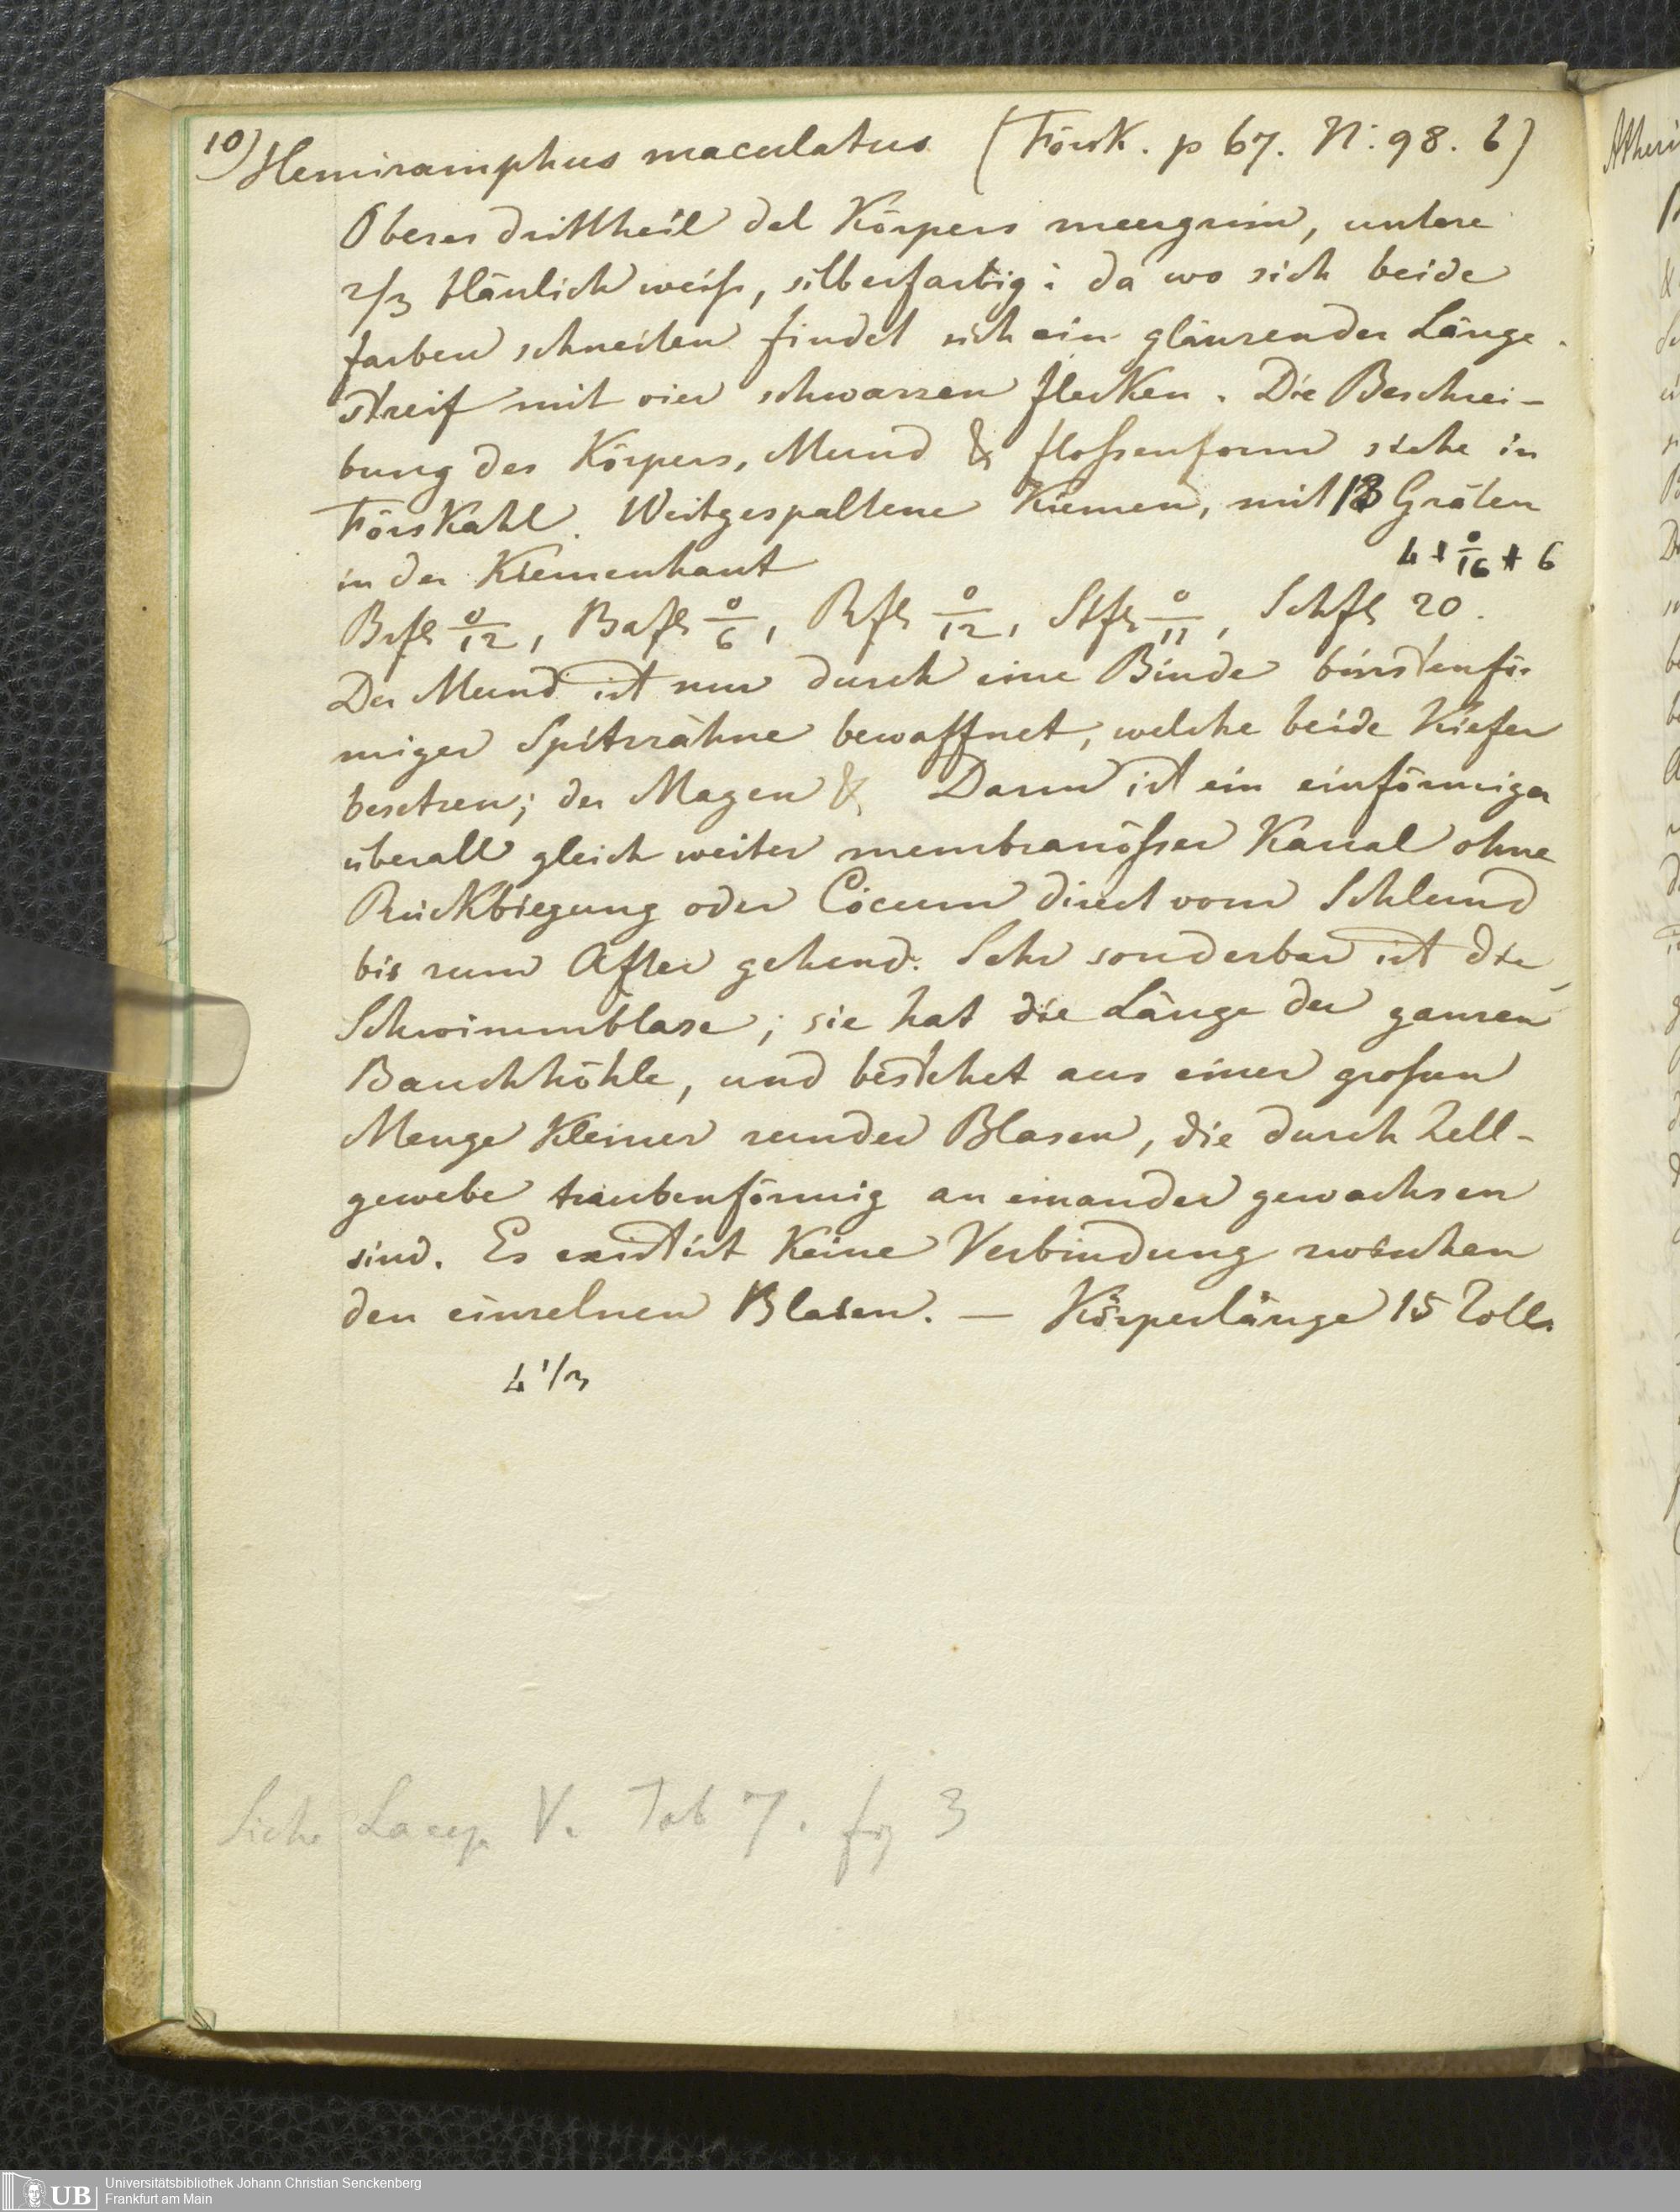 10) Hemiramphus maculatus (Försk. p 67. N: 98. b)
Oberes drittheil des Körpers meergrün, untere
2/3 bläulich weiß, silberfarbig: da wo sich beide
farben schneiden findet sich ein glänzender Länge-
streif mit vier schwarzen flecken. Die Beschrei-
bung des Körpers, Mund & floßenform siehe in
Förskahl. Weitgespaltene Kiemen, mit 13 Gräten
in der Kiemenhaut
4 + 0/16 + 6
Brfl 0/12, Bafl 0/6, Rfl 0/12, Stfl 0/11, Schfl 20.
Der Mund ist nur durch eine Binde bürstenför
miger Spitzzähne bewaffnet, welche beide Kiefer
besetzen; der Magen & Darm ist ein einförmiger
überall gleich weiter membranößer Kanal ohne
Rückbiegung oder Cöcum direct vom Schlund
bis zum After gehend. Sehr sonderbar ist die
Schwimmblase; sie hat die Länge der ganzen
Bauchhöhle, und bestehet aus einer großen
Menge Kleiner runder Blasen, die durch Zell-
gewebe traubenförmig an einander gewachsen
sind. Es existirt Keine Verbindung zwischen
den einzelnen Blasen. — Körperlänge 15 Zoll.
4 1/3
Siehe Lacep. V. Tab 7. fg 3
Atheri
UB Universitätsbibliothek Johann Christian Senckenberg
Frankfurt am Main